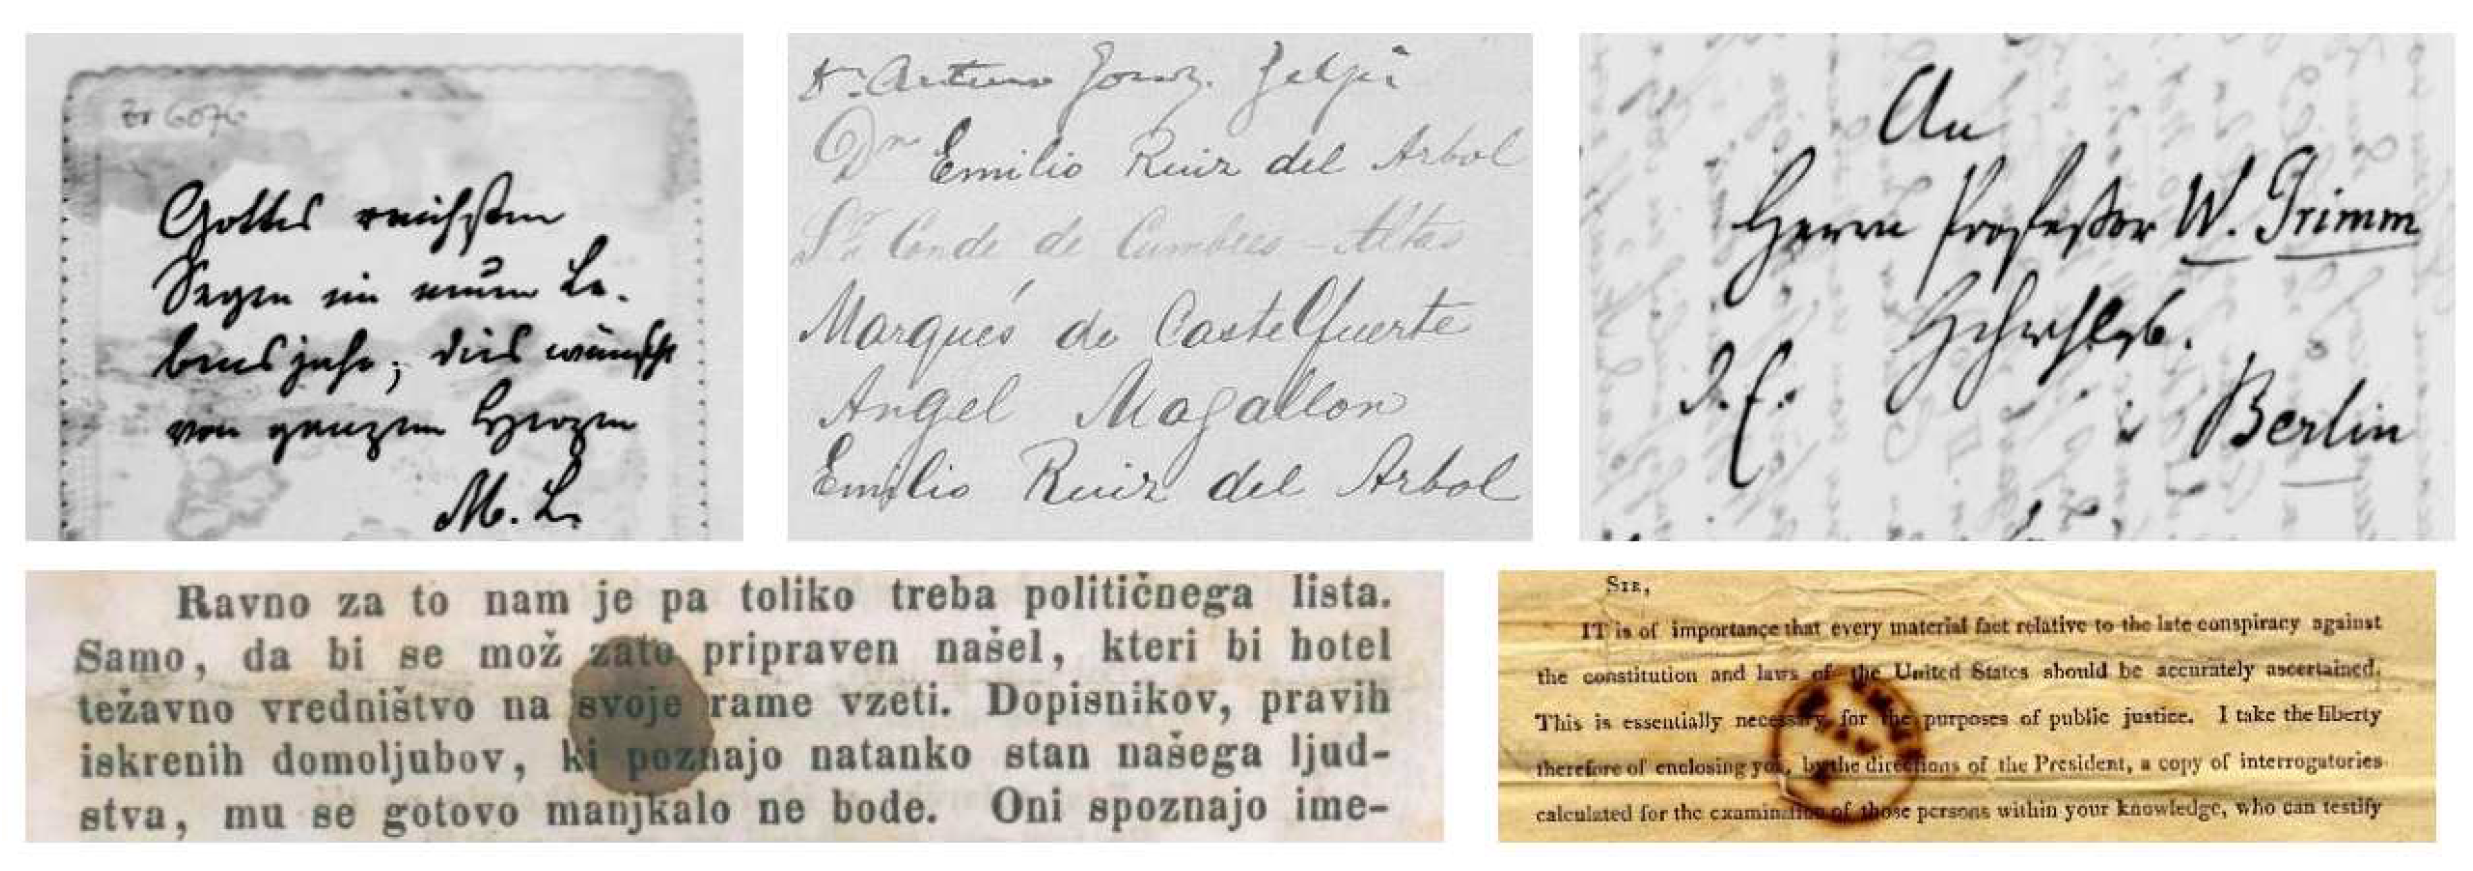 Zr 6076
Gottes reichsten
Segen im neuen Le-
bensjahr, dies wünscht
von ganzem Herzen
M. L.
Dr. Arturo
Dr Emilio Ruiz del Arbol
Sr. Conde de Cumbres-Altas
Marqués de Castelfuerte
Angel Magallon
Emilio Ruiz del Arbol
An
Herrn Professor W. Grimm
Berlin
Ravno za to nam je pa toliko treba političnega lista.
Samo, da bi se mož zato pripraven našel, kteri bi hotel
težavno vredništvo na svoje rame vzeti. Dopisnikov, pravih
iskrenih domoljubov, ki poznajo natanko stan našega ljud-
stva, mu se gotovo manjkalo ne bode. Oni spoznajo ime-
SIR,
IT is of importance that every material fact relative to the late conspiracy against
the constitution and laws of the United States should be accurately ascertained.
This is essentially necessary for the purposes of public justice. I take the liberty
therefore of enclosing you, by the directions of the President, a copy of interrogatories
calculated for the examination of those persons within your knowledge, who can testify